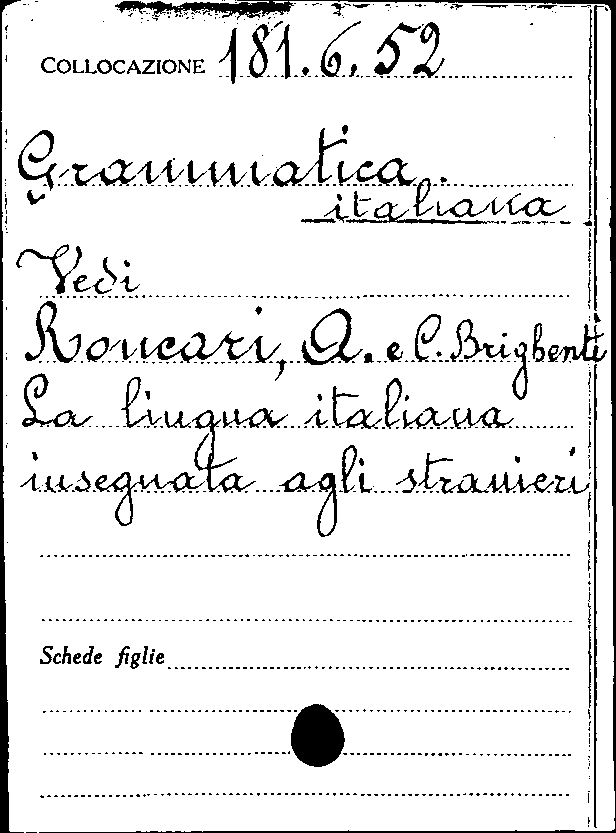 COLLOCAZIONE 181.6.52
Grammatica.
italiana
Vedi
Roncari, A. e C. Brighenti
La lingua italiana
insegnata agli stranieri
Schede figlie